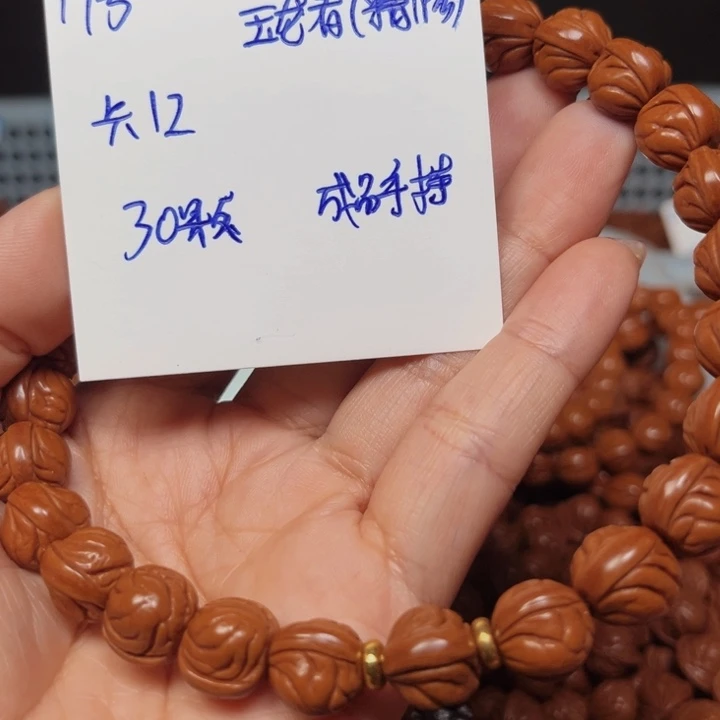 玉龙有(精修)
卡12
30颗 成品手持